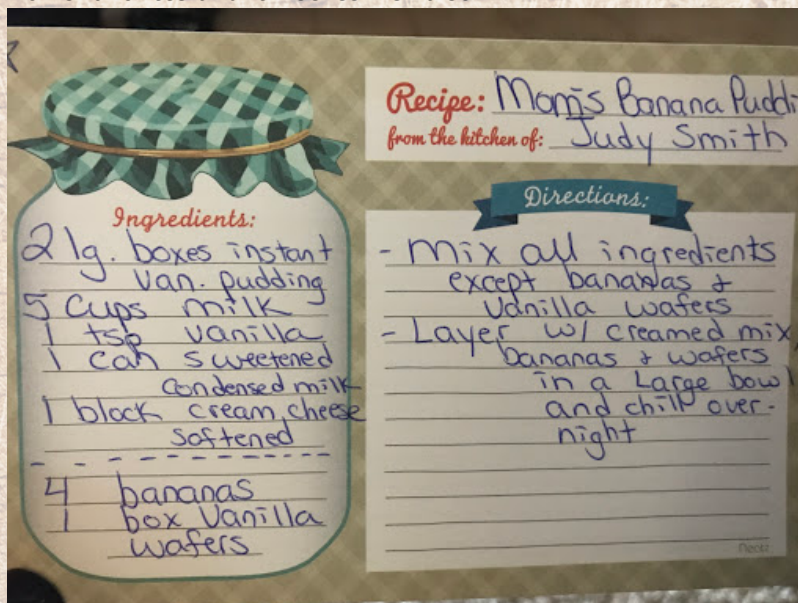 Recipe: Mom's Banana Puddi
from the kitchen of: Judy Smith
Ingredients:
2 lg. boxes instant
van. pudding
5 cups milk
1 tsp vanilla
1 can sweetened
condensed milk
1 block cream cheese
softened
4 bananas
1 box vanilla
wafers
Directions:
- Mix all ingredients
except bananas &
vanilla wafers
- Layer w/ creamed mix,
bananas & wafers
in a Large bowl
and chill over-
night